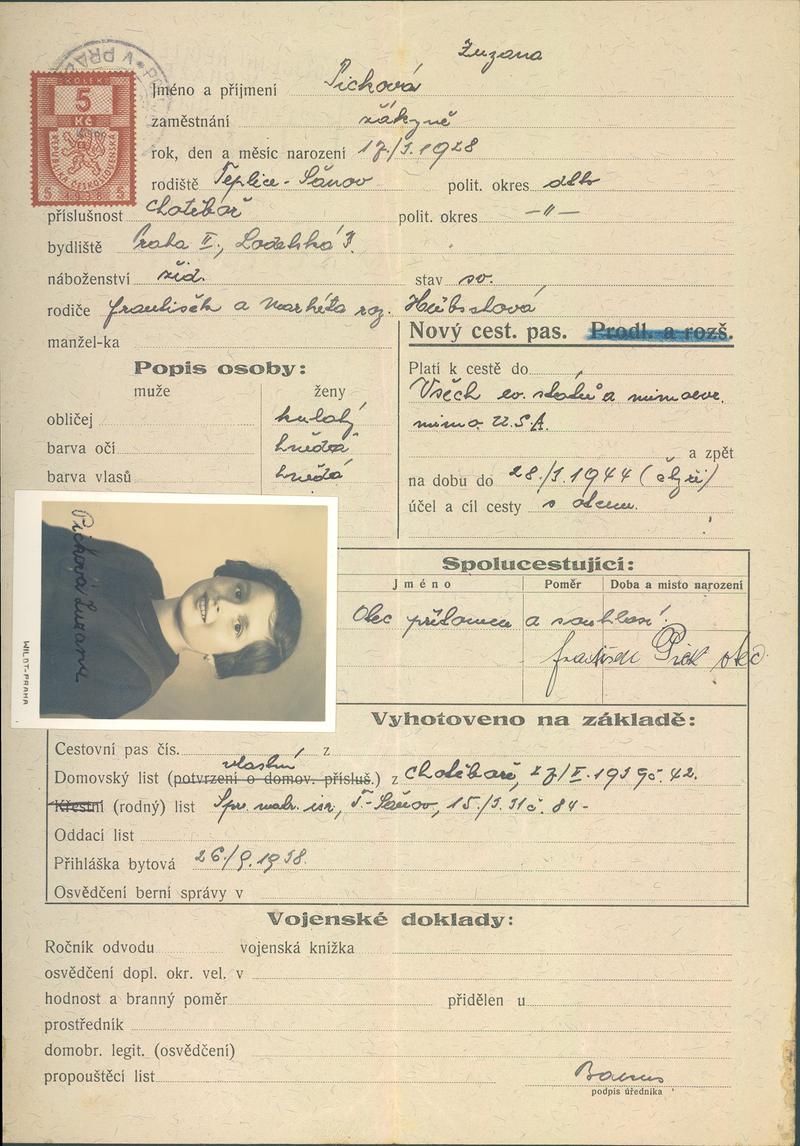 Zuzana
Jméno a příjmení Picková
zaměstnání žákyně
rok, den a měsíc narození 17/I. 1928
rodiště Teplice-Šanov polit. okres dtto
příslušnost Chotěboř polit. okres —"—
bydliště Praha II., Loděcká 3.
náboženství žid. stav sv.
rodiče František a Markéta roz.
manžel-ka
Nový cest. pas. Prodl. a rozš.
Popis osoby:
muže ženy
obličej kulatý
barva očí hnědá
barva vlasů hnědá
Platí k cestě do
Všech ev. států a mimoevr.
mimo U.S.A.
a zpět
na dobu do 28/I. 1944
účel a cíl cesty s otcem.
KOLEK
5
Kč
REPUBLIKA ČESKOSLOVENSKÁ
5 1938 5
V PRAZE
Picková Zuzana
WILDT-PRAHA
Spolucestující:
Jméno Poměr Doba a místo narození
Otec přítomen a souhlasí.
František Pick otec
Vyhotoveno na základě:
Cestovní pas čís. z
vlastní
Domovský list (potvrzení o domov. přísluš.) z Chotěboře, 1939 č. 42.
Křestní (rodný) list Spr. matr. isr., T.-Šanov, 15./I. 31 č. 84-
Oddací list
Přihláška bytová 26/9. 1938.
Osvědčení berní správy v
Vojenské doklady:
Ročník odvodu vojenská knížka
osvědčení dopl. okr. vel. v
hodnost a branný poměr přidělen u
prostředník
domobr. legit. (osvědčení)
propouštěcí list
podpis úředníka